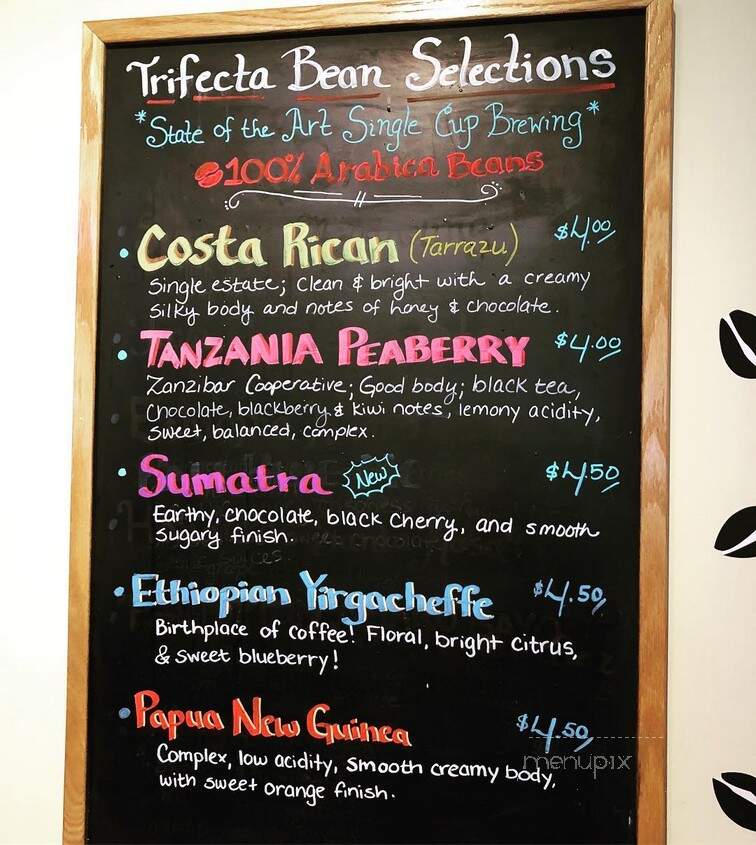 Trifecta Bean Selections
*State of the Art Single Cup Brewing*
100% Arabica Beans
• Costa Rican (Tarrazu) $4.00
Single estate; Clean & bright with a creamy
silky body and notes of honey & chocolate.
• TANZANIA PEABERRY $4.00
Zanzibar Cooperative; Good body; black tea,
Chocolate, blackberry & kiwi notes, lemony acidity,
sweet, balanced, complex.
• Sumatra New $4.50
Earthy, chocolate, black cherry, and smooth
sugary finish.
• Ethiopian Yirgacheffe $4.50
Birthplace of coffee! Floral, bright citrus,
& sweet blueberry!
• Papua New Guinea $4.50
Complex, low acidity, smooth creamy body,
with sweet orange finish.
menupix